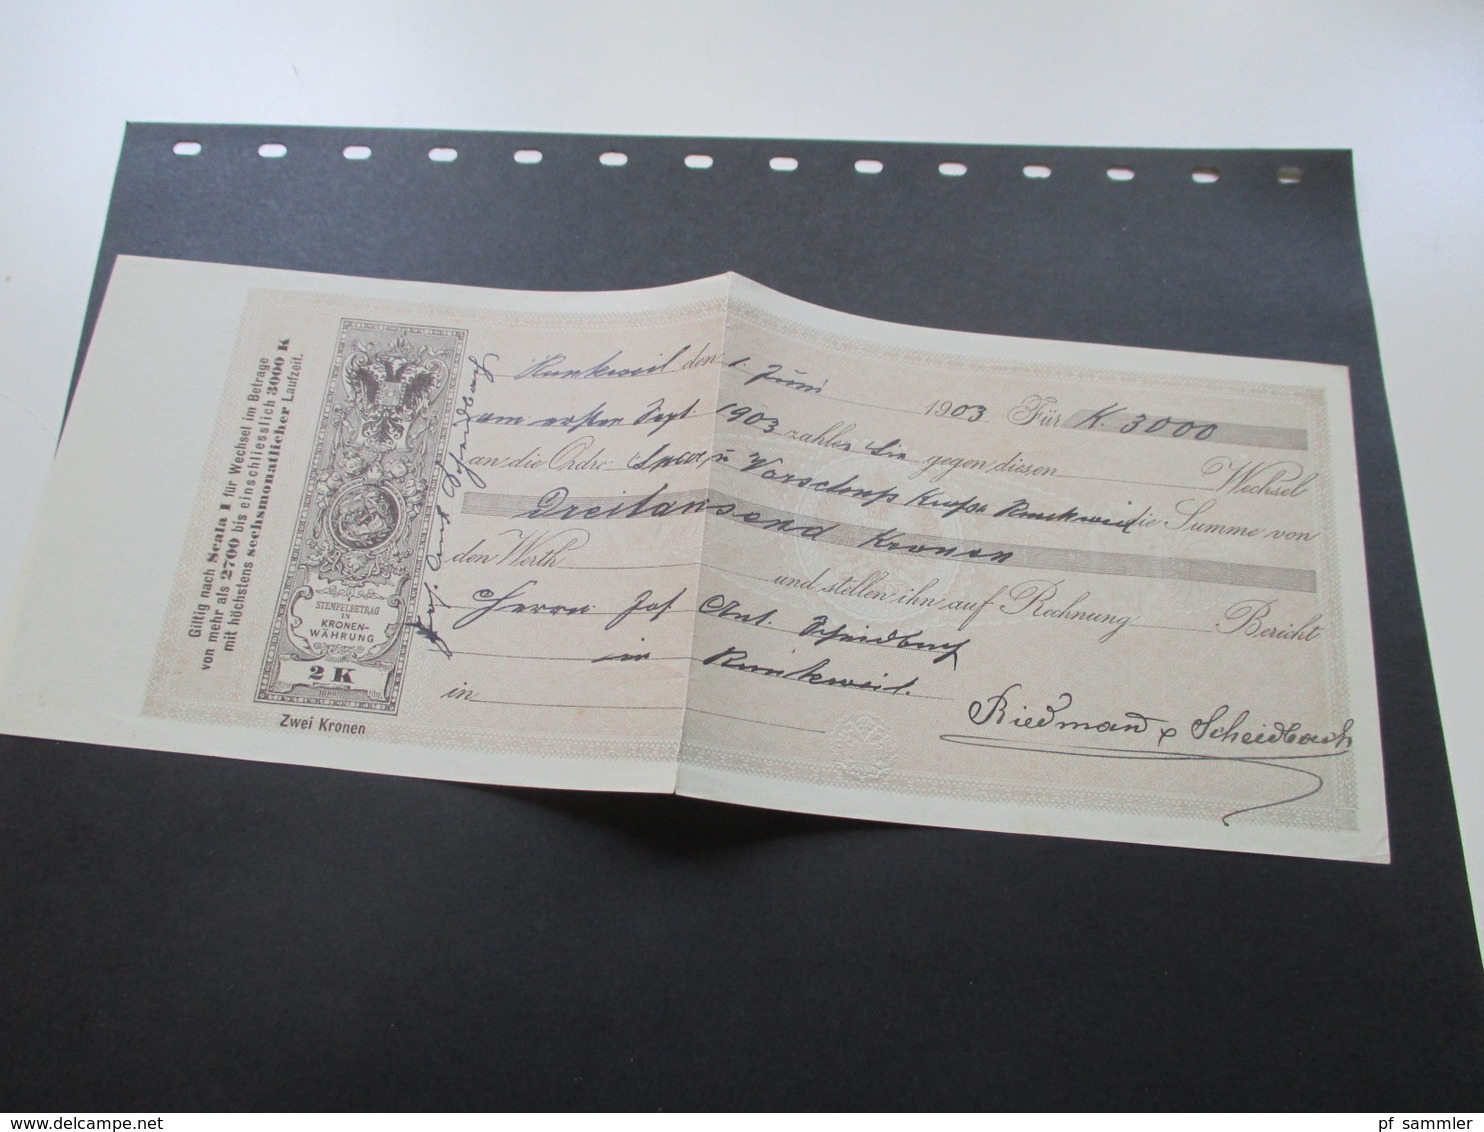 Giltig nach Scala I für Wechsel im Betrage
von mehr als 2700 bis einschliesslich 3000 K
mit höchstens sechsmonatlicher Laufzeit.
STEMPELBETRAG
IN
KRONEN-
WÄHRUNG
2 K
Zwei Kronen
Rankweil den 1. Juni 1903 Für K. 3000
am ersten Sept. 1903 zahlen Sie gegen diesen Wechsel
an die Ordre Spar u Vorschuß Kassa Rankweil die Summe von
Dreitausend Kronen
den Werth und stellen ihn auf Rechnung Bericht
Herrn Jos Ant. Scheidbach
in Rankweil.
in
Riedman & Scheidbach
Jos. Ant Scheidbach
pf_sammler